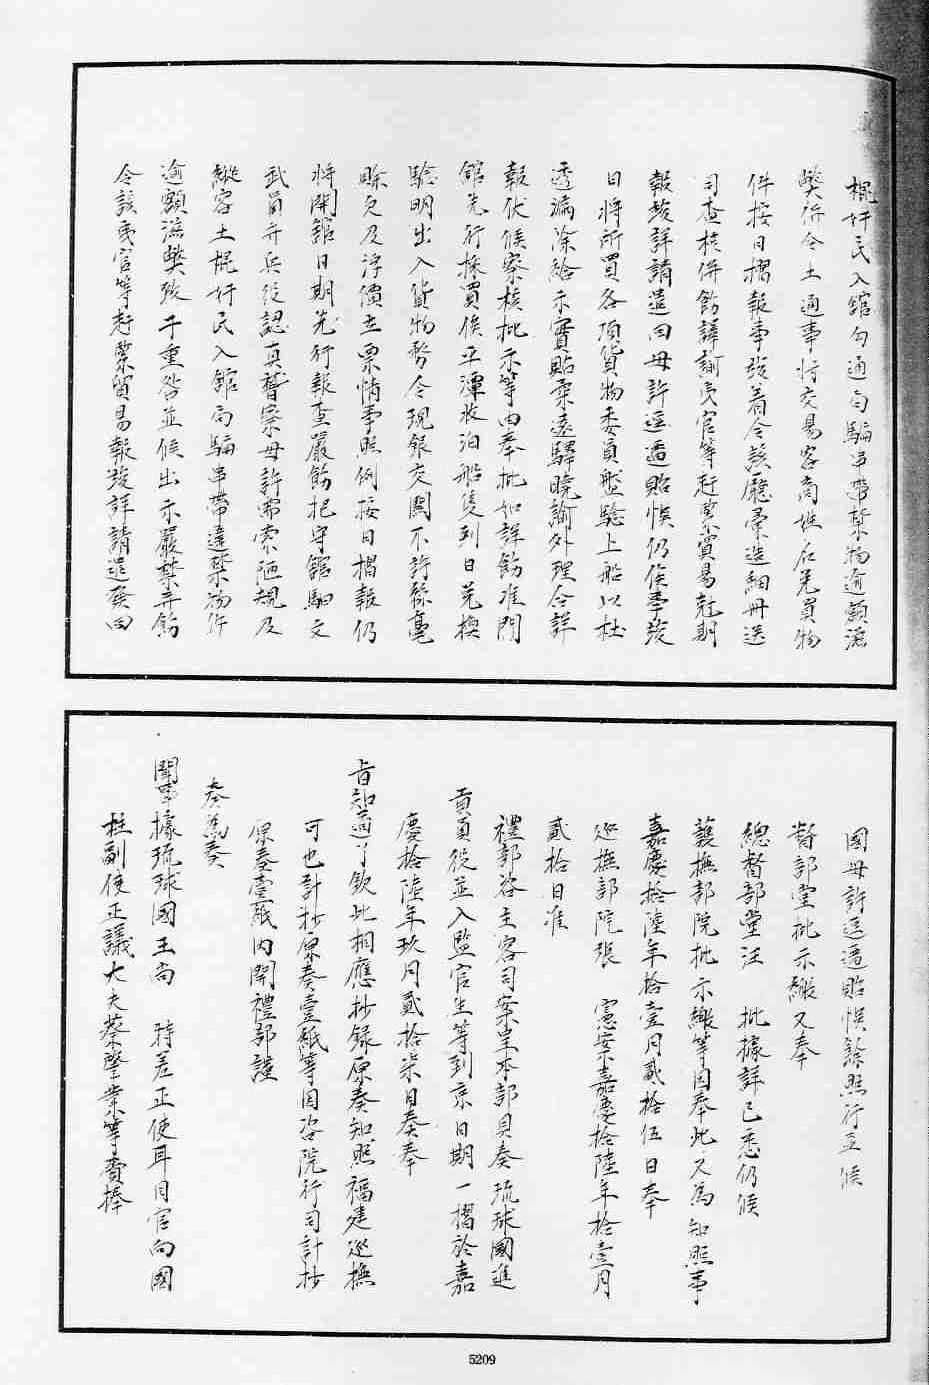 棍奸民入館勾通勾騙串帶禁物逾額滋
弊併令土通事將交易客商姓名兌買物
件按日摺報事竣着令該廳彙造細冊送
司查核併飭譯諭夷官等赶緊貿易尅期
報竣詳請遣回毋許逗遛貽悞仍俟事竣
日將所買各項貨物委員盤驗上船以杜
透漏除給示實貼柔遠驛曉諭外理合詳
報伏候察核批示等由奉批如詳飭准開
館先行採買俟平潭收泊船隻到日兌換
驗明出入貨物務令現銀交關不許絲毫
賒欠及浮價立票悄事照例按日摺報仍
將開館日期先行報查嚴飭把守館駟文
武員弁兵役認真稽察毋許需索陋規及
縱容土棍奸民入館勾騙串帶違禁物件
逾額滋弊致干重咎並候出示嚴禁并飭
令該夷官等赶緊貿易報竣詳請遣發回
國毋許逗遛貽悞餘照行立候
督部堂批示繳又奉
總督部堂汪 批據詳已悉仍候
護撫部院批示繳等因奉此又為知照事
嘉慶拾陸年拾壹月貳拾伍日奉
巡撫部院張 憲案嘉慶拾陸年拾壹月
貳拾日准
禮部咨主客司案呈本部具奏琉球國進
貢員役並入監官生等到京日期一摺於嘉
慶拾陸年玖月貳拾柒日奏奉
旨知道了欽此相應抄錄原奏知照福建巡撫
可也計抄原奏壹紙等因咨院行司計抄
原奏壹紙內開禮部謹
奏為奏
聞事據琉球國王尚 特差正使耳目官向國
柱副使正議大夫蔡肇業等賫捧
5209